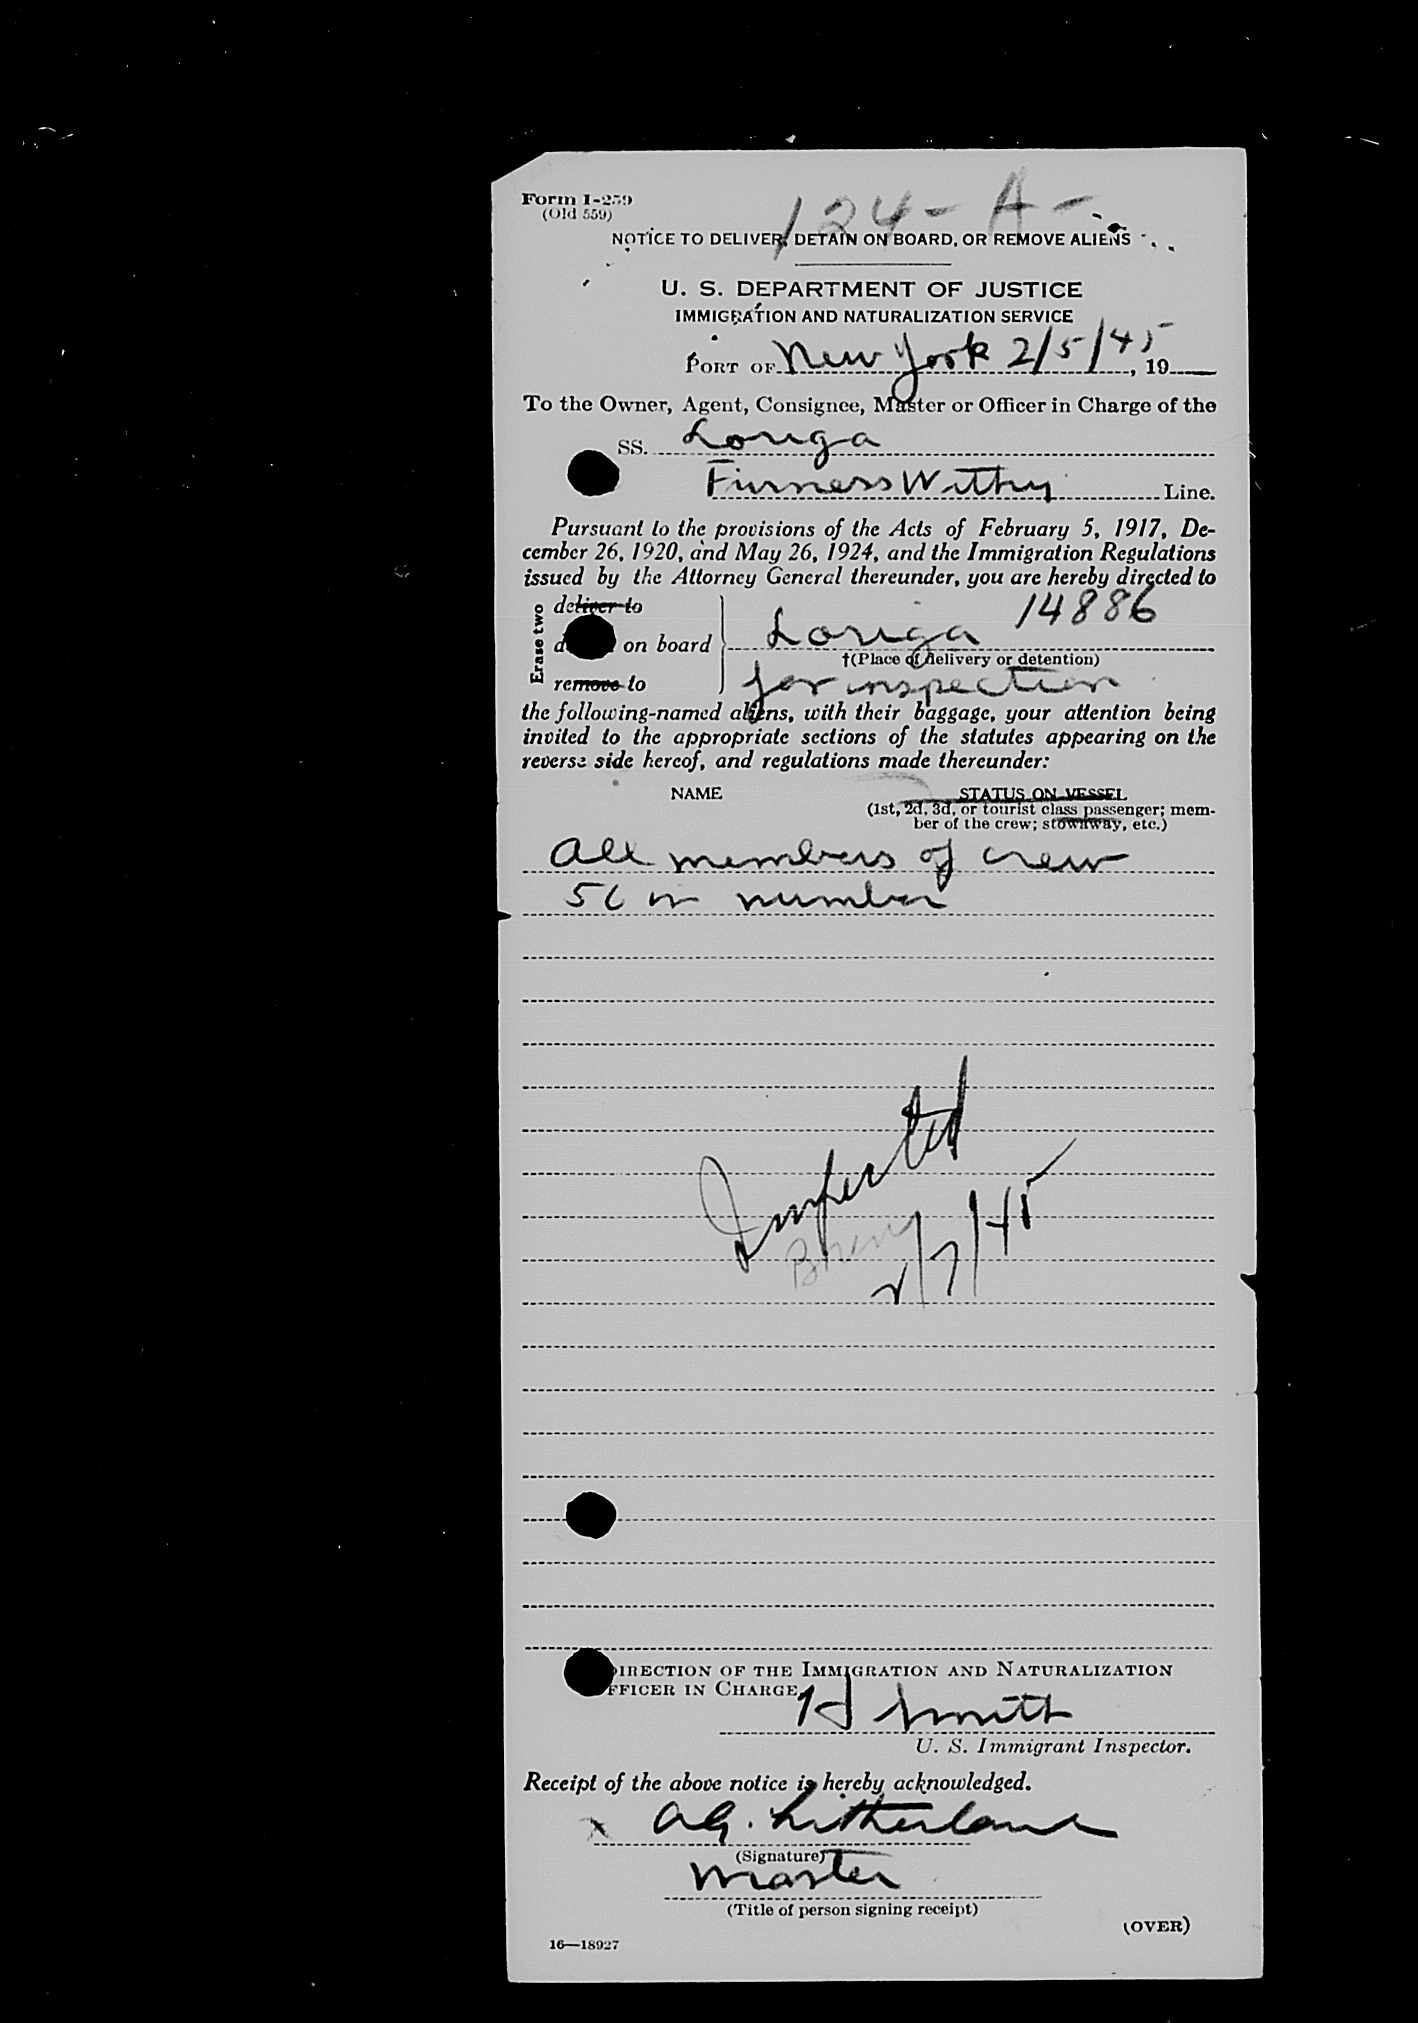 Form I-259
(Old 559)
124-A-
NOTICE TO DELIVER, DETAIN ON BOARD, OR REMOVE ALIENS
U. S. DEPARTMENT OF JUSTICE
IMMIGRATION AND NATURALIZATION SERVICE
PORT OF New York 2/5/45, 19
To the Owner, Agent, Consignee, Master or Officer in Charge of the
SS. Loriga
Furness Withy Line.
Pursuant to the provisions of the Acts of February 5, 1917, De-
cember 26, 1920, and May 26, 1924, and the Immigration Regulations
issued by the Attorney General thereunder, you are hereby directed to
Erase two
deliver to
14886
on board Loriga
†(Place of delivery or detention)
remove to for inspection
the following-named aliens, with their baggage, your attention being
invited to the appropriate sections of the statutes appearing on the
reverse side hereof, and regulations made thereunder:
NAME STATUS ON VESSEL
(1st, 2d, 3d, or tourist class passenger; mem-
ber of the crew; stowaway, etc.)
All members of crew
56 in number
Inspected
2/7/45
DIRECTION OF THE IMMIGRATION AND NATURALIZATION
OFFICER IN CHARGE
H Smith
U. S. Immigrant Inspector.
Receipt of the above notice is hereby acknowledged.
x A.G. Litherland
(Signature)
Master
(Title of person signing receipt)
(OVER)
16—18927